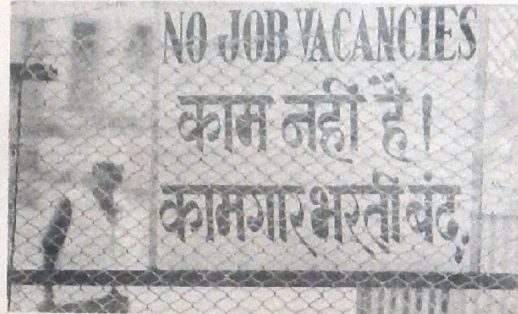 NO JOB VACANCIES
काम नहीं है।
कामगार भरती बंद.